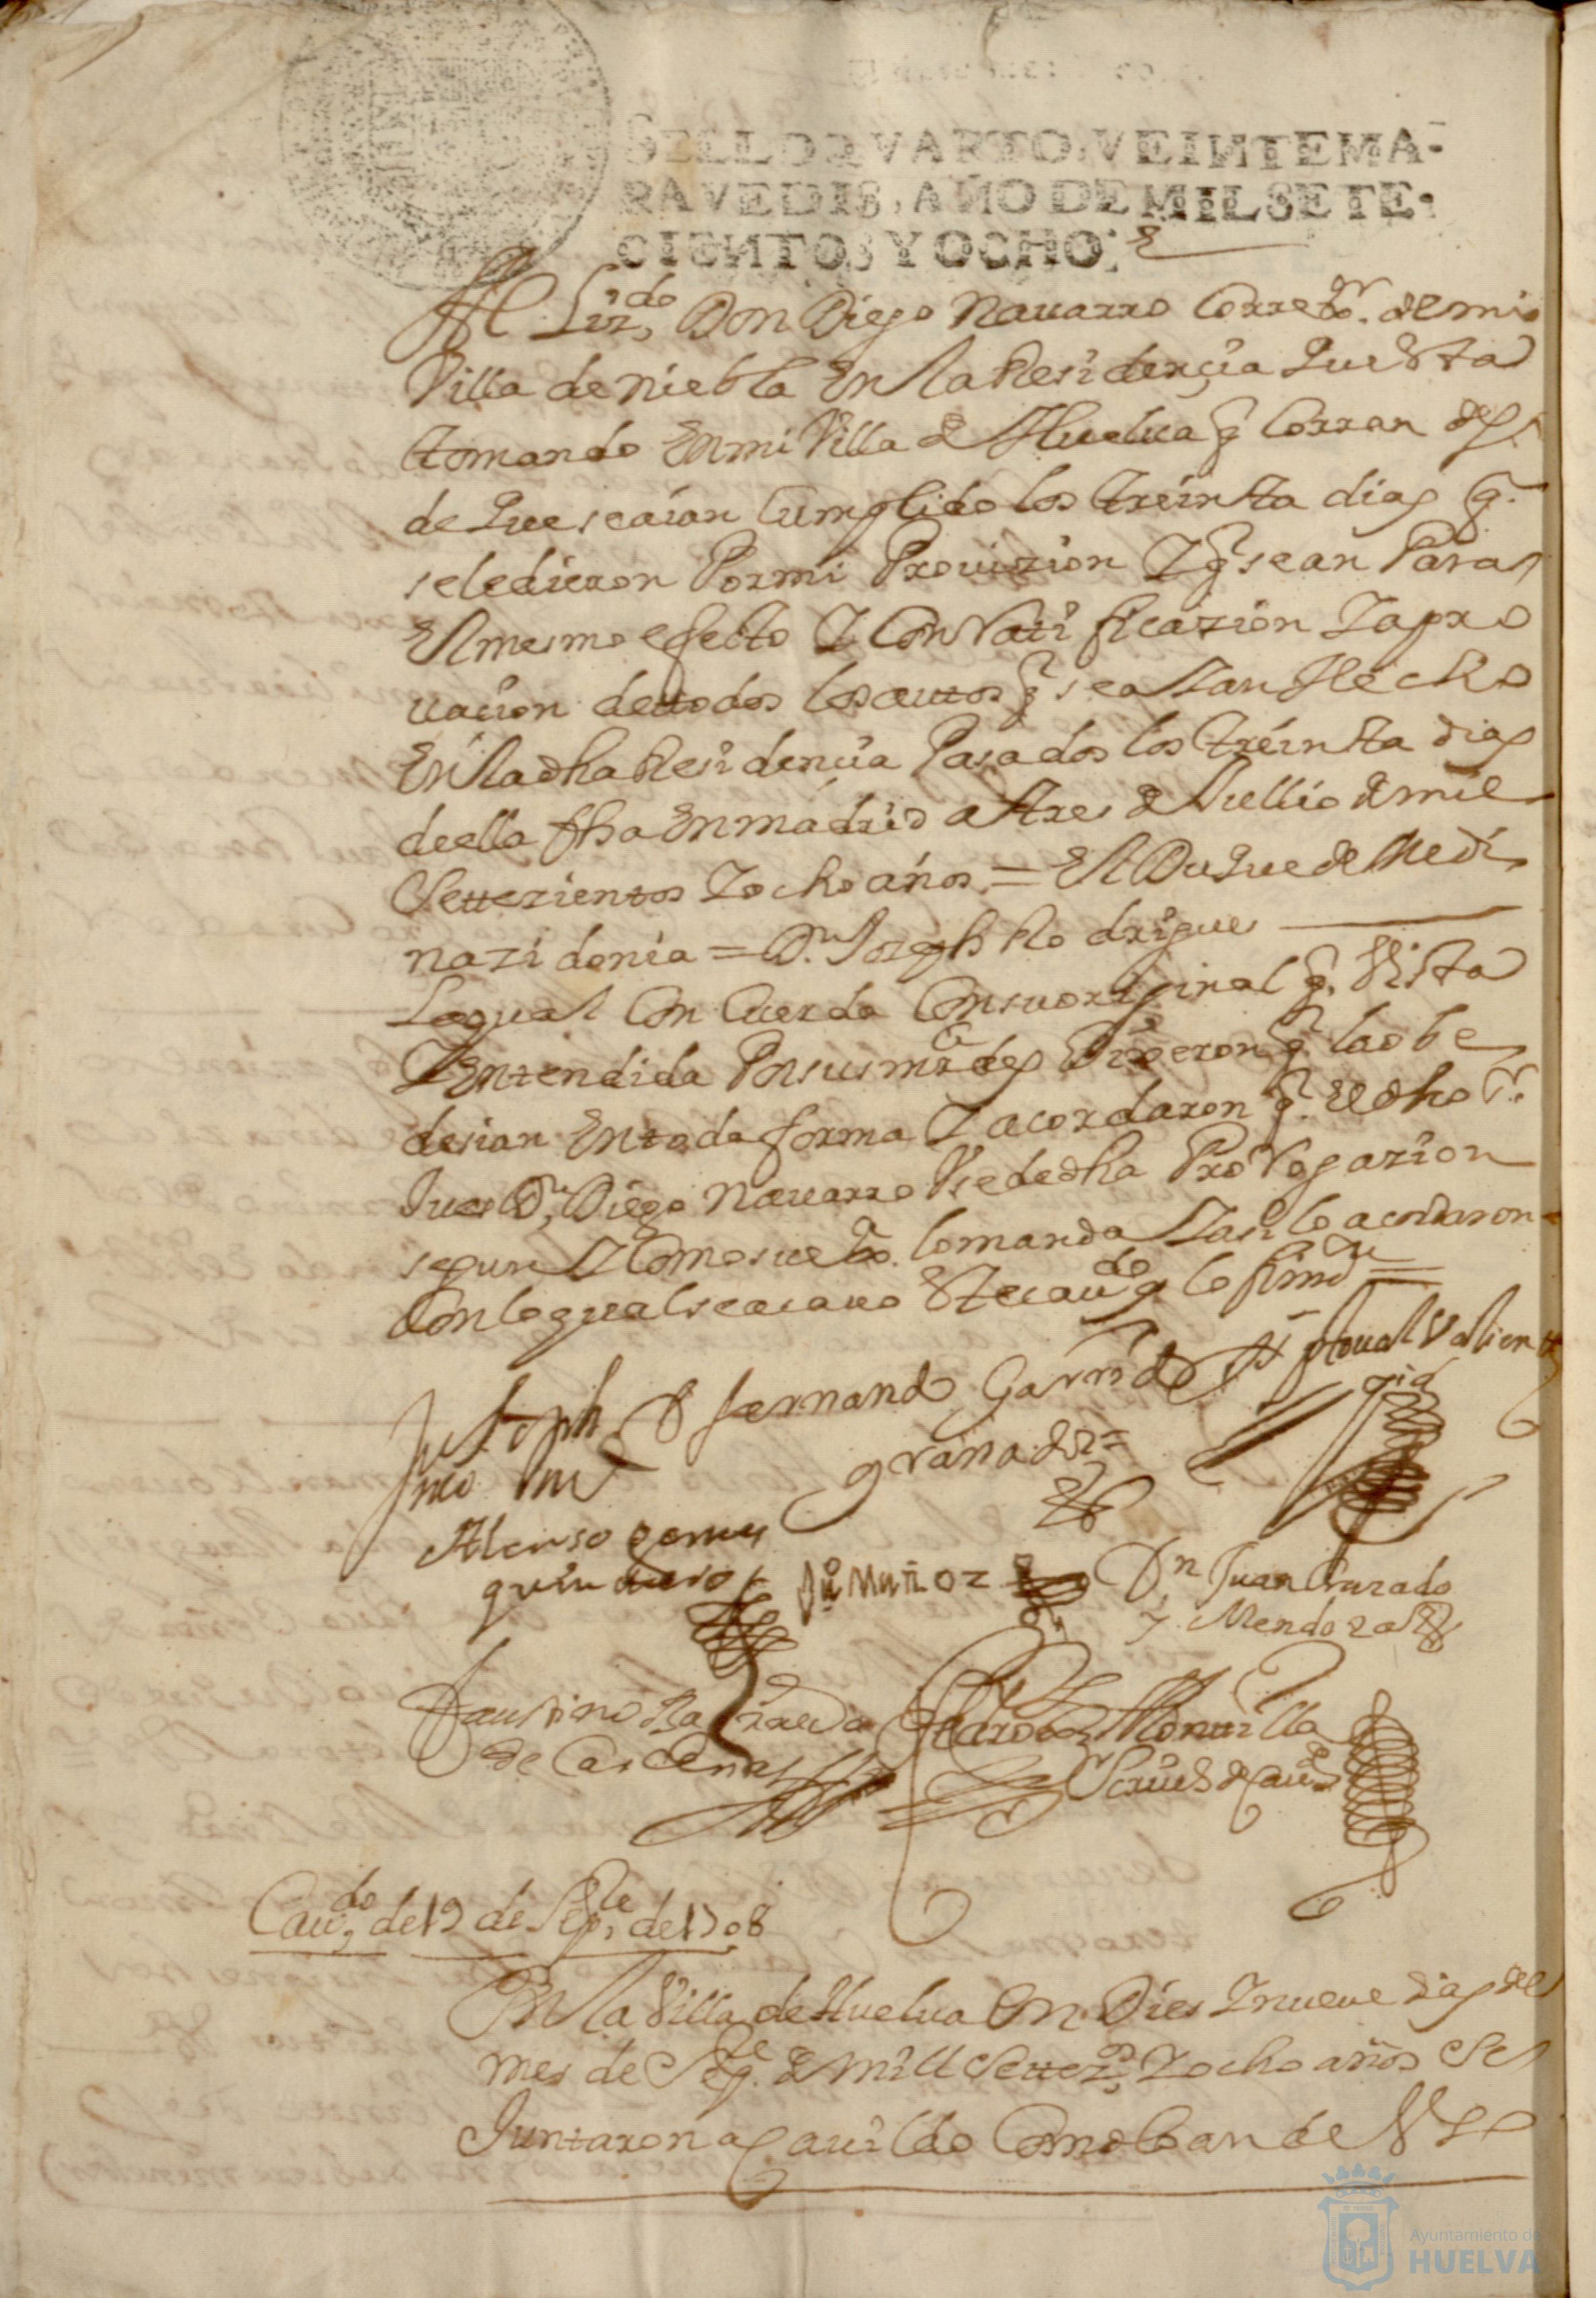 SELLO QVARTO, VEINTE MA-
RAVEDIS, AÑO DE MIL SETE-
CIENTOS Y OCHO.
Al Lizdo, Don Diego Nauarro Correor. de mi
Villa de Niebla En la Residençia que Esta
tomando En mi Villa de Huelua q Corran
de que seaian Cumplido los treinta dias q.
seledieron Por mi Provizion Y q sean Para
El mesmo efecto Y Con Ratificazion Y apro
uacion de ttodos los auttos q sea Yan Hecho
En la dha Residencia Pasados los treinta dias
de ella fha En madrid a tres de Jullio de mil
Settezientos Y ocho años = El Duque de Medi
nazidonia = Dn. Joseph Rodrigues
Lo qual Concuerda Con su original q. Vista
Y Entendida Por sus mrdes Dixeron q. la obe
desian En toda forma Y acordaron q. el dho Sr.
Jues Dn. Diego Nauarro Vse de dha Prorrogazion
segun Y Como su exa. lo manda Y asi lo acordaron
Con lo qual se acauo Este caudo q lo firmo
Fernando Garrido
granado =
Alonso gomes
quintero
Ju Muñoz
Dn Juan Hurtado
y Mendoza
Faustino Barreda
de Cardenas
Montilla
Scriuo de Cauo
Caudo, de 19 de Sepe, de 1708
En la Villa de Huelua En Dies Y nueue dias del
mes de Sepe. de mill Settezos, Y ocho años Se
Juntaron a Cauildo Como lo an de Vsso
Ayuntamiento de
HUELVA